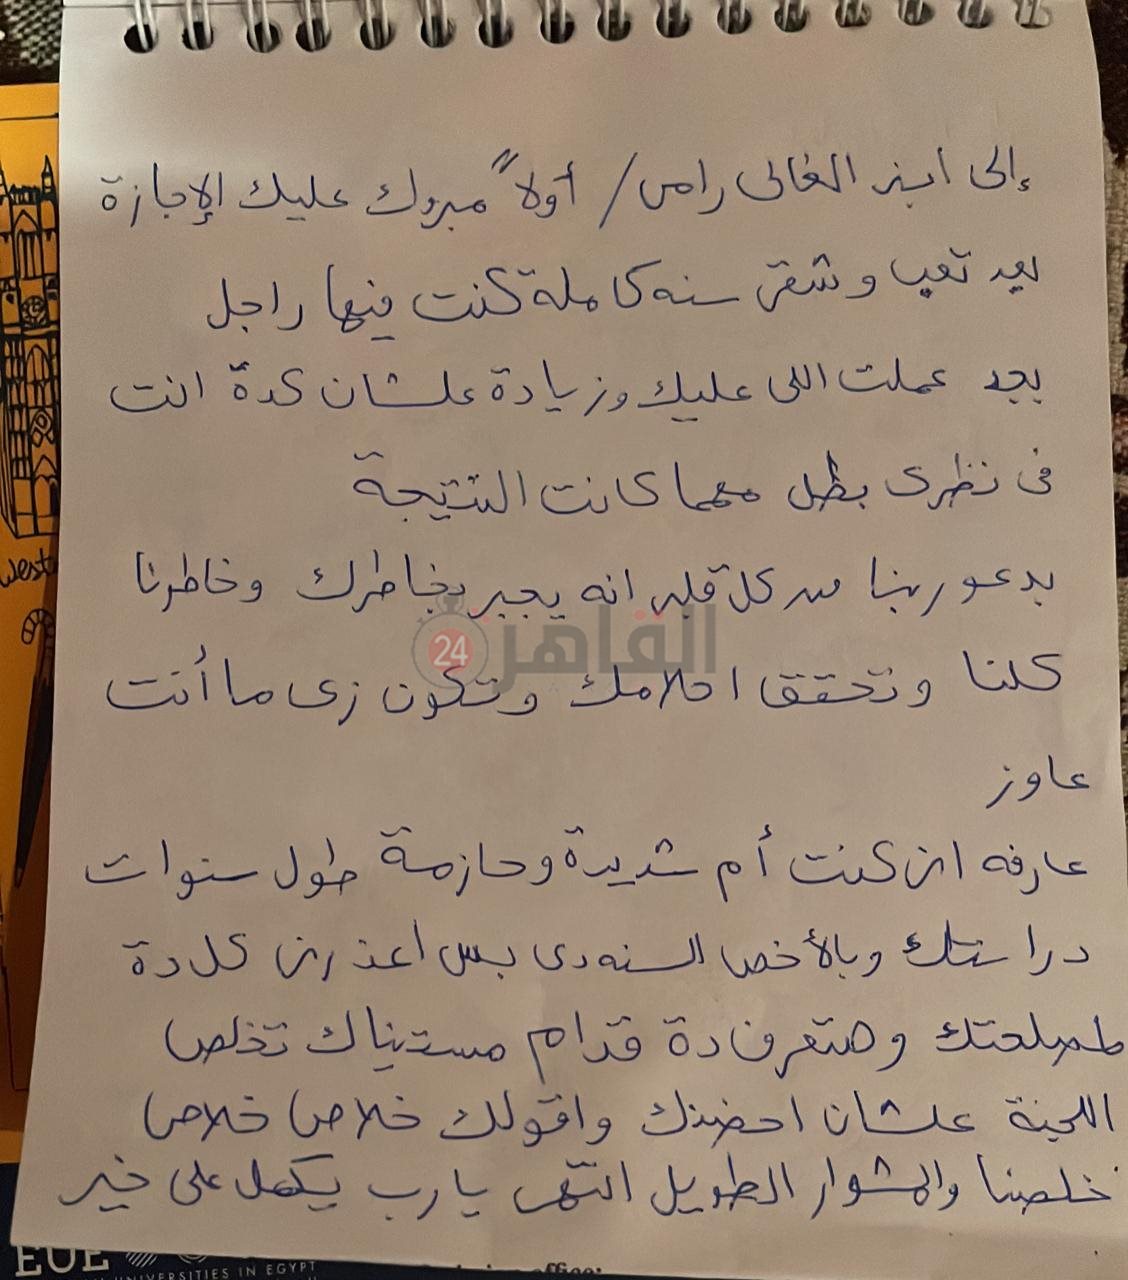 إلى ابنى الغالى رامى / أولاً مبروك عليك الإجازة
بعد تعب وشقى سنه كاملة كنت فيها راجل
بجد عملت اللى عليك وزيادة علشان كدة انت
فى نظرى بطل مهما كانت النتيجة
بدعو ربنا من كل قلبى انه يجبر بخاطرك وخاطرنا
كلنا وتحقق احلامك وتكون زى ما أنت
عاوز
عارفه انى كنت أم شديدة وحازمة طول سنوات
دراستك وبالأخص السنه دى بس اعذرنى كل دة
لمصلحتك وهتعرف دة قدام مستنياك تخلص
اللجنة علشان احضنك واقولك خلاص خلاص
خلصنا والمشوار الطويل انتهى يارب يكمل على خير
القاهرة 24
West
EUE
UNIVERSITIES IN EGYPT
office: